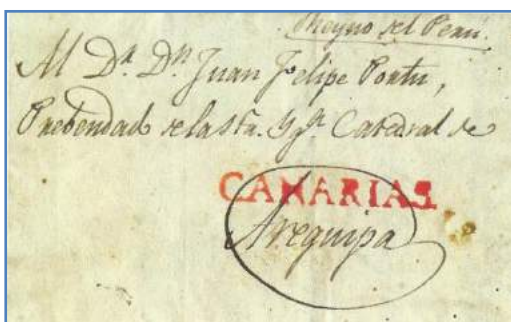 Reyno del Peru.
Al Dr. Dn Juan Felipe Portu,
Prebendado de la Sta. Ygª Catedral de
CANARIAS
Arequipa